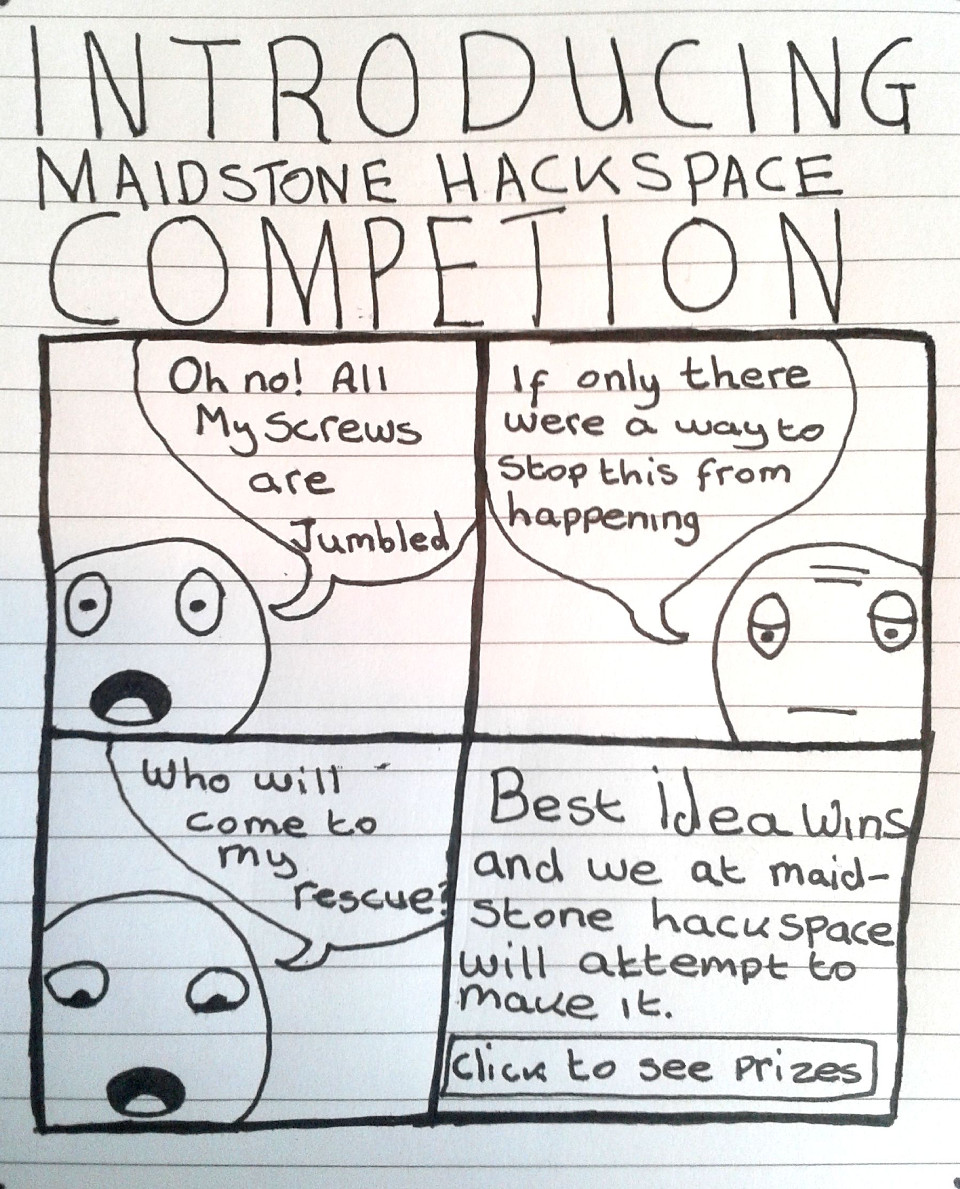 INTRODUCING
MAIDSTONE HACKSPACE
COMPETION
Oh no! All
My Screws
are
Jumbled
If only there
were a way to
Stop this from
happening
Who will
come to
my
rescue?
Best idea wins
and we at maid-
stone hackspace
will attempt to
make it.
Click to see prizes